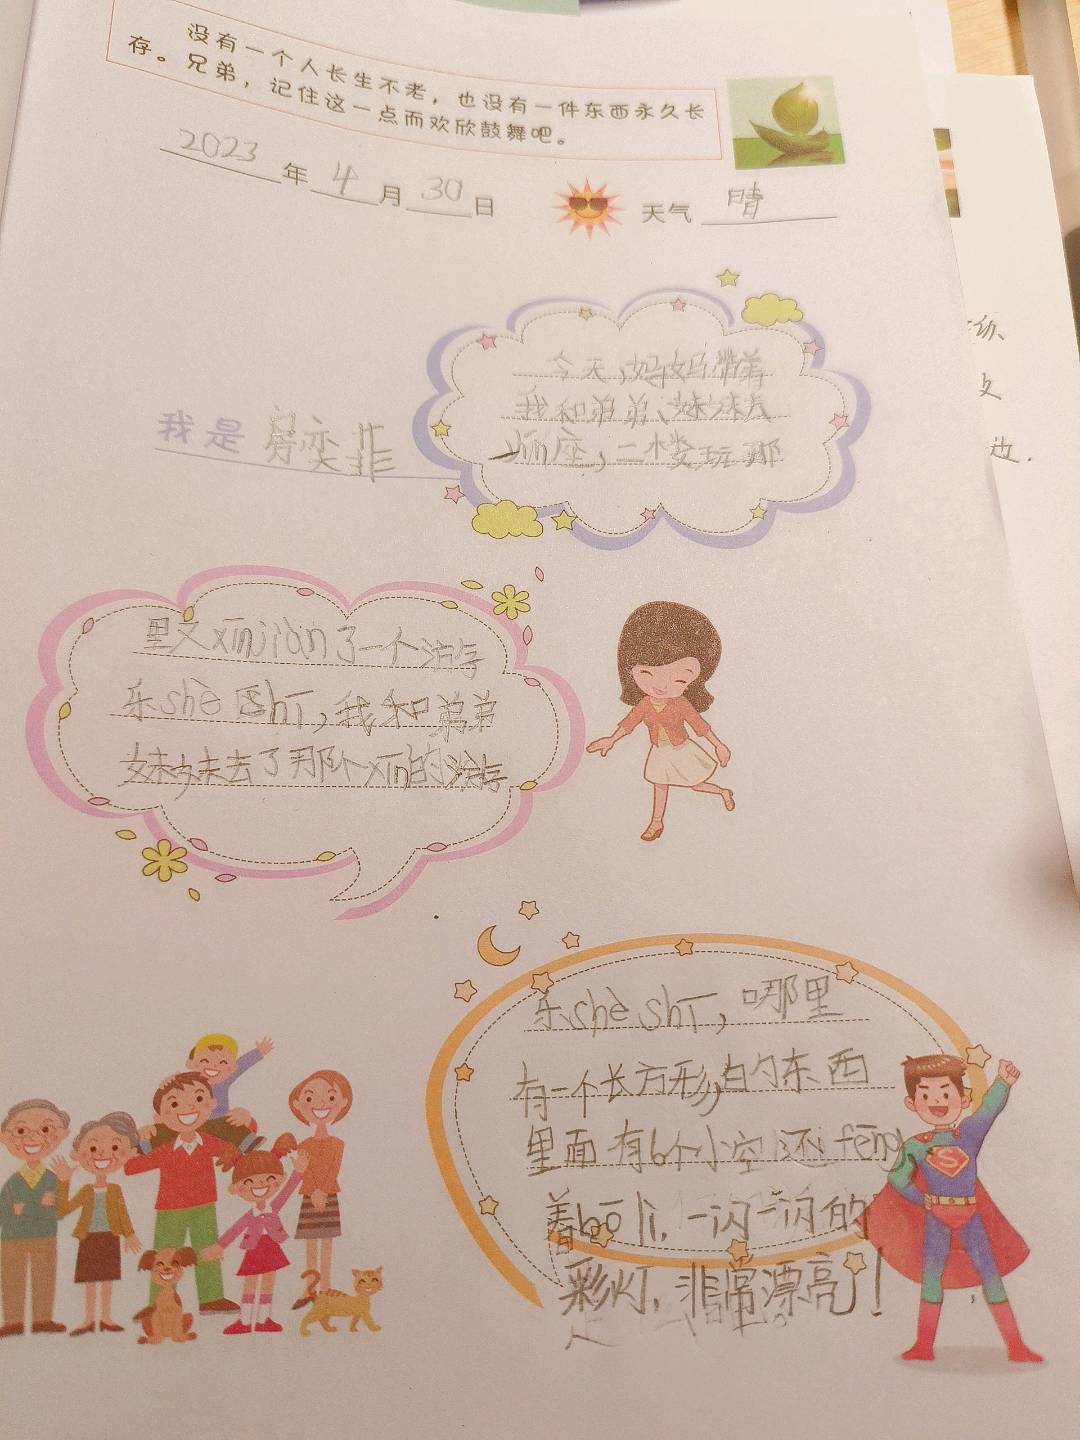 没有一个人长生不老，也没有一件东西永久长
存。兄弟，记住这一点而欢欣鼓舞吧。
2023年4月30日 天气 晴
今天，妈妈带着
我和弟弟、妹妹去
yin座，二楼玩那
我是 房奕菲
里又xīnjiàn了一个游
乐shè shī，我和弟弟
妹妹去了那个xīn的游
乐shè shī，哪里
有一个长方形的东西
里面有6个小空还fēng
着bō li，一闪一闪的
彩灯，非常漂亮！